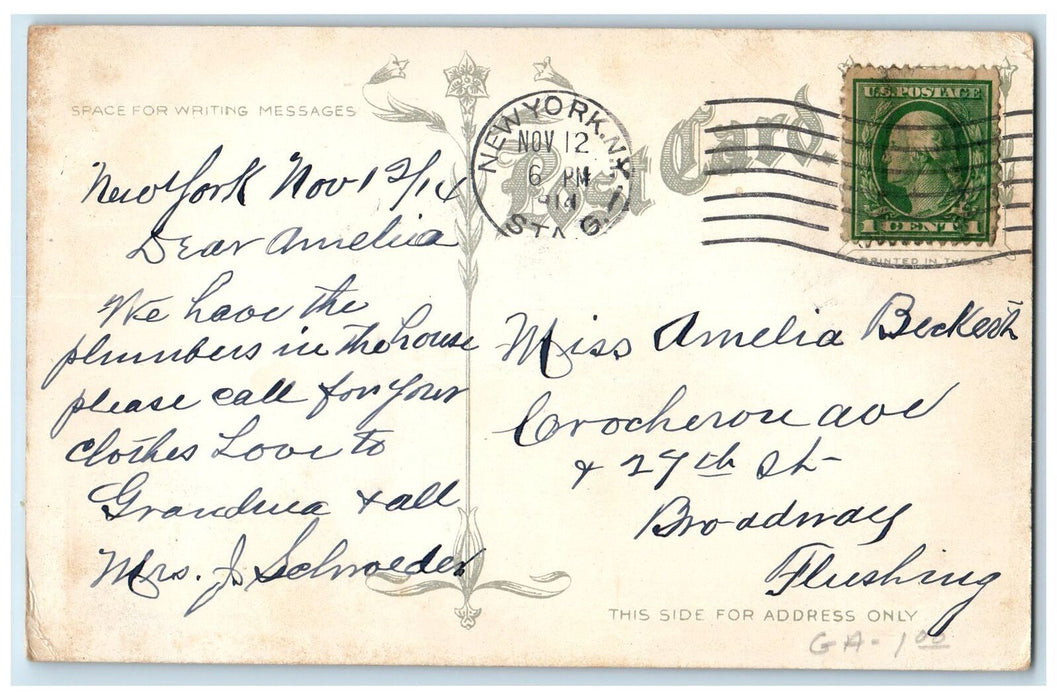 SPACE FOR WRITING MESSAGES
Post Card
NEW YORK, N.Y.
NOV 12
6 PM
1914
STA. G.
U.S. POSTAGE
1 CENT 1
PRINTED IN THE U.S.
New York Nov 12/14
Dear Amelia
We have the
plumbers in the house
please call for your
clothes Love to
Grandma & all
Mrs. J. Schroeder
Miss Amelia Beckert
Crocheron ave
& 27th St-
Broadway
Flushing
THIS SIDE FOR ADDRESS ONLY
GA-100